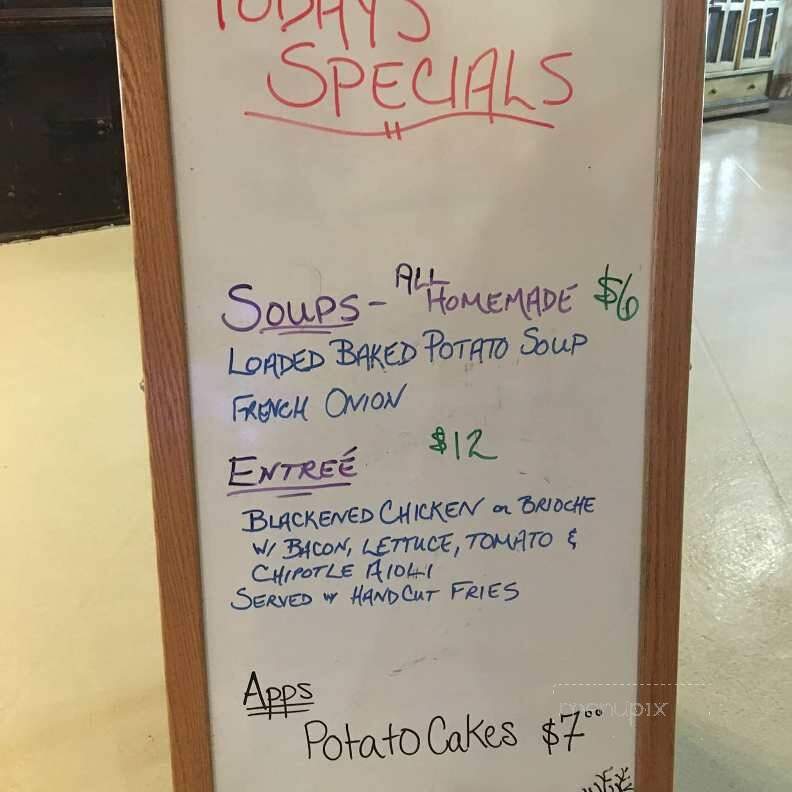 TODAY'S
SPECIALS
SOUPS - ALL HOMEMADE $6
LOADED BAKED POTATO SOUP
FRENCH ONION
$12
ENTREÉ
BLACKENED CHICKEN on BRIOCHE
W/ BACON, LETTUCE, TOMATO &
CHIPOTLE AIOLI
SERVED W HANDCUT FRIES
Apps
Potato Cakes $7.00
menupix